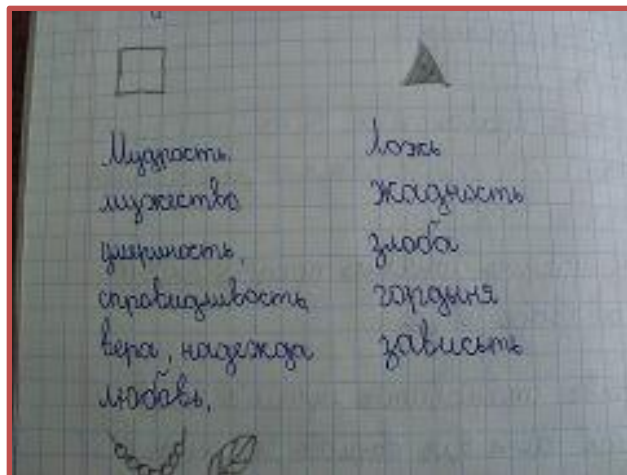 Мудрость.
мужество
умериность,
справидливость
вера, надежда
любовь,
Ложь
жадность
злоба
гордыня
зависыть